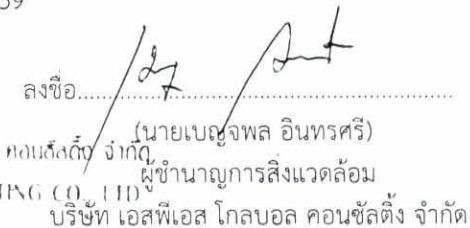 59
ลงชื่อ
(นายเบญจพล อินทรศรี)
คอนซัลติ้ง จำกัด
ผู้ชำนาญการสิ่งแวดล้อม
ING CO., LTD
บริษัท เอสพีเอส โกลบอล คอนซัลติ้ง จำกัด